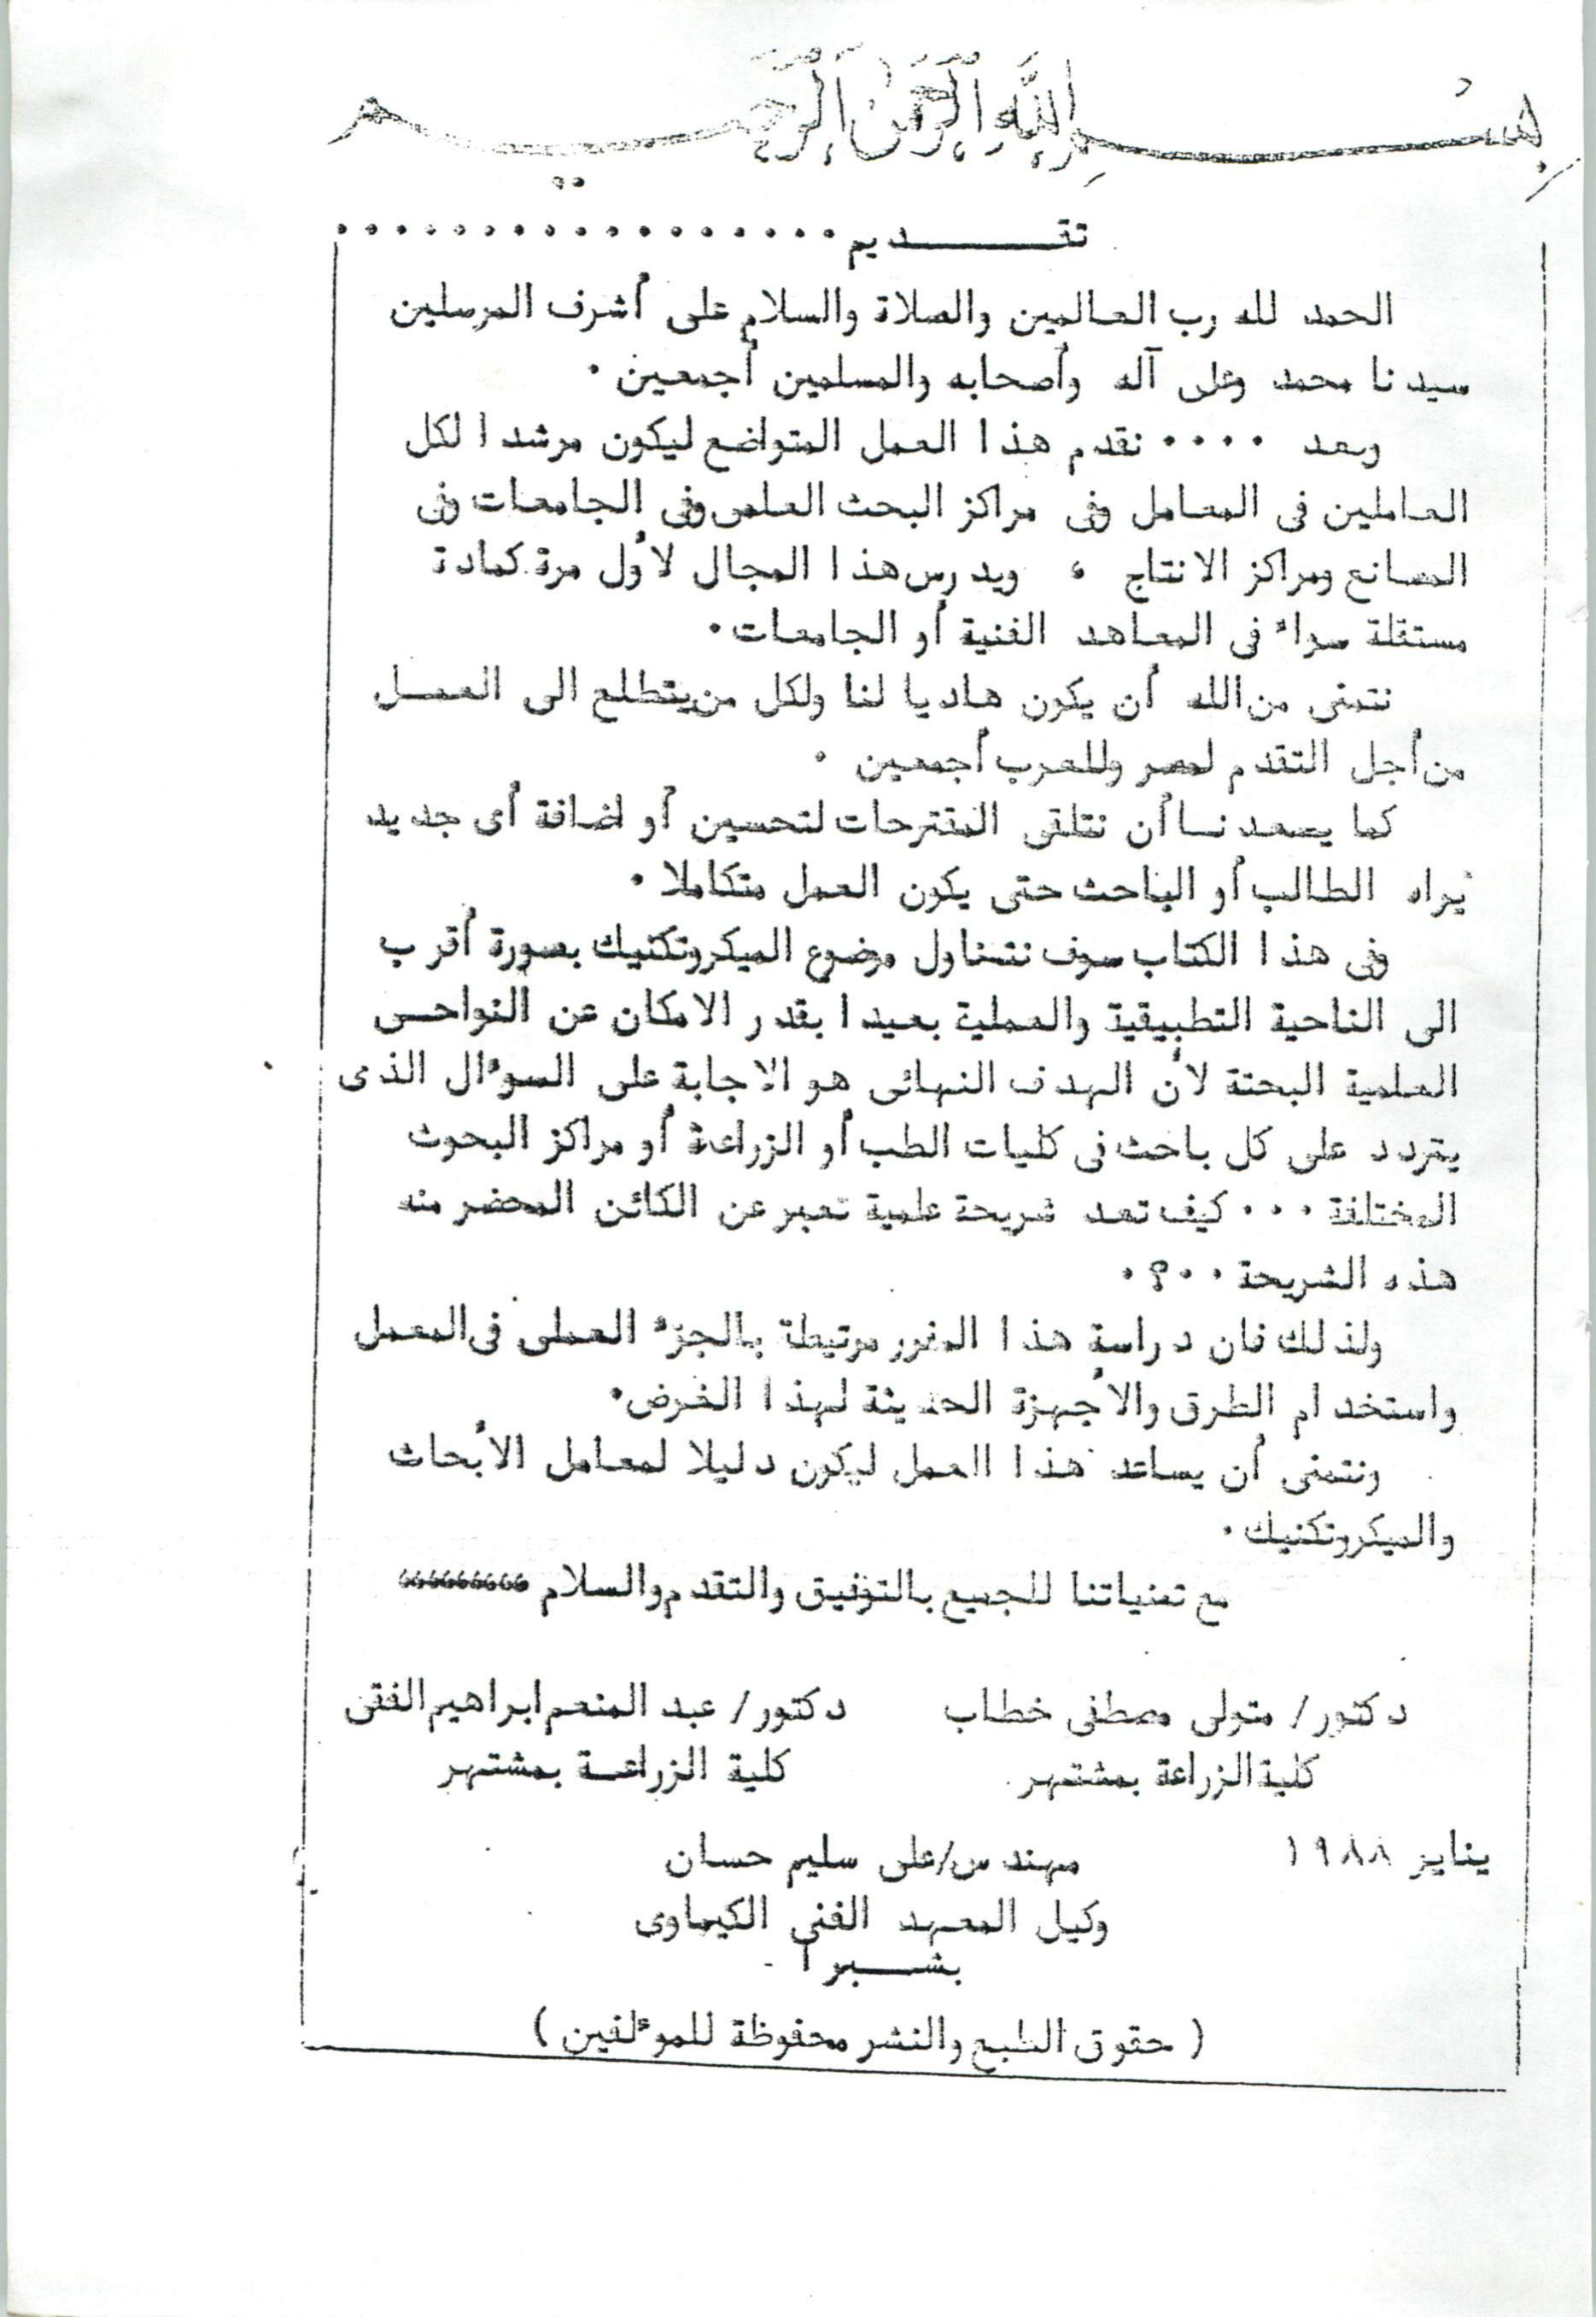 بِسْمِ اللَّهِ الرَّحْمَنِ الرَّحِيمِ
تقـــديم ..................
الحمد لله رب العالمين والصلاة والسلام على أشرف المرسلين
سيدنا محمد وعلى آله وأصحابه والمسلمين أجمعين .
وبعد .... نقدم هذا العمل المتواضع ليكون مرشدا لكل
العاملين فى المعامل وفى مراكز البحث العلمى وفى الجامعات وفى
المصانع ومراكز الانتاج ، ويدرس هذا المجال لأول مرة كمادة
مستقلة سواء فى المعاهد الفنية أو الجامعات .
نتمنى من الله أن يكون هاديا لنا ولكل من يتطلع الى العمـل
من أجل التقدم لمصر وللعرب أجمعين .
كما يسعدنـا أن نتلقى المقترحات لتحسين أو اضافة أى جديد
يراه الطالب أو الباحث حتى يكون العمل متكاملا .
وفى هذا الكتاب سوف نتناول موضوع الميكروتكنيك بصورة أقرب
الى الناحية التطبيقية والعملية بعيدا بقدر الامكان عن النواحـى
العلمية البحتة لأن الهدف النهائى هو الاجابة على السؤال الذى
يتردد على كل باحث فى كليات الطب أو الزراعة أو مراكز البحوث
المختلفة ... كيف تعد شريحة علمية تعبر عن الكائن المحضر منه
هذه الشريحة ..؟.
ولذلك فان دراسة هذا المقرر مرتبطة بالجزء العملى فى المعمل
واستخدام الطرق والأجهزة الحديثة لهذا الغرض .
ونتمنى أن يساعد هذا العمل ليكون دليلا لمعامل الأبحاث
والميكروتكنيك .
مع تمنياتنا للجميع بالتوفيق والتقدم والسلام ،،،،،،،،،
دكتور/ متولى مصطفى خطاب دكتور/ عبد المنعم ابراهيم الفقى
كلية الزراعة بمشتهر كلية الزراعـة بمشتهر
يناير ١٩٨٨ مهندس/على سليم حسان
وكيل المعهد الفنى الكيماوى
بشـــبرا
( حقوق الطبع والنشر محفوظة للمؤلفين )